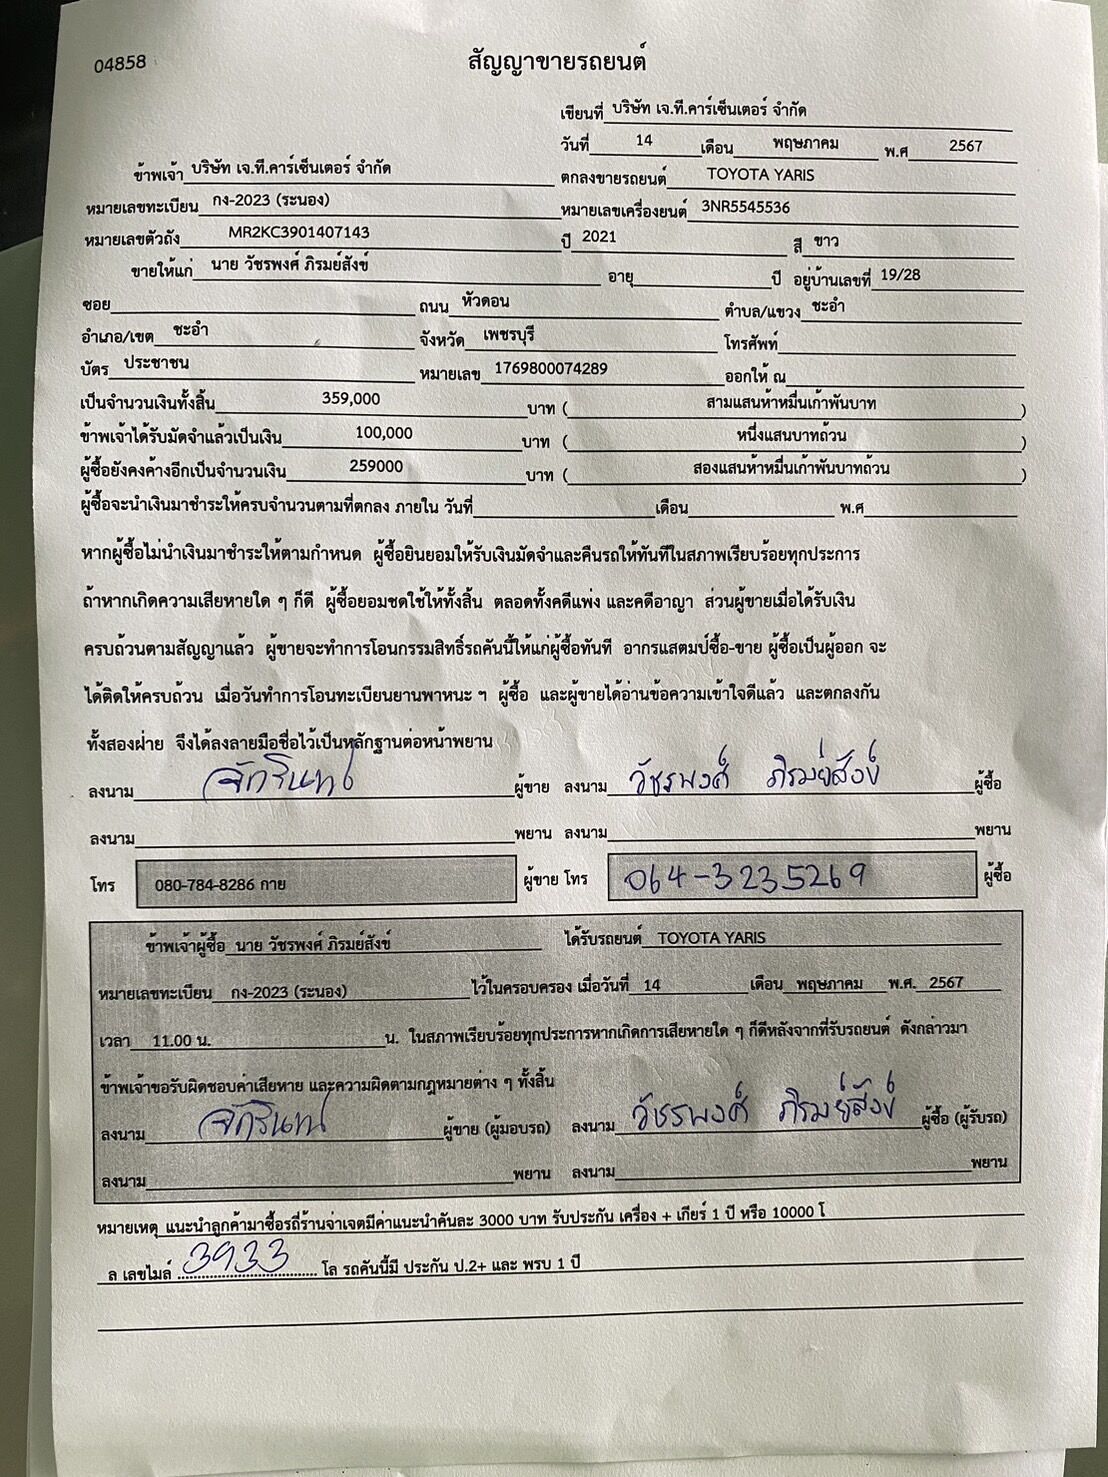 04858
สัญญาขายรถยนต์
เขียนที่ บริษัท เจ.ที.คาร์เซ็นเตอร์ จำกัด
วันที่ 14 เดือน พฤษภาคม พ.ศ 2567
ข้าพเจ้า บริษัท เจ.ที.คาร์เซ็นเตอร์ จำกัด ตกลงขายรถยนต์ TOYOTA YARIS
หมายเลขทะเบียน กง-2023 (ระนอง) หมายเลขเครื่องยนต์ 3NR5545536
หมายเลขตัวถัง MR2KC3901407143 ปี 2021 สี ขาว
ขายให้แก่ นาย วัชรพงศ์ ภิรมย์สังข์ อายุ ปี อยู่บ้านเลขที่ 19/28
ซอย ถนน หัวดอน ตำบล/แขวง ชะอำ
อำเภอ/เขต ชะอำ จังหวัด เพชรบุรี โทรศัพท์
บัตร ประชาชน หมายเลข 1769800074289 ออกให้ ณ
เป็นจำนวนเงินทั้งสิ้น 359,000 บาท ( สามแสนห้าหมื่นเก้าพันบาท )
ข้าพเจ้าได้รับมัดจำแล้วเป็นเงิน 100,000 บาท ( หนึ่งแสนบาทถ้วน )
ผู้ซื้อยังคงค้างอีกเป็นจำนวนเงิน 259000 บาท ( สองแสนห้าหมื่นเก้าพันบาทถ้วน )
ผู้ซื้อจะนำเงินมาชำระให้ครบจำนวนตามที่ตกลง ภายใน วันที่ เดือน พ.ศ
หากผู้ซื้อไม่นำเงินมาชำระให้ตามกำหนด ผู้ซื้อยินยอมให้รับเงินมัดจำและคืนรถให้ทันทีในสภาพเรียบร้อยทุกประการ
ถ้าหากเกิดความเสียหายใด ๆ ก็ดี ผู้ซื้อยอมชดใช้ให้ทั้งสิ้น ตลอดทั้งคดีแพ่ง และคดีอาญา ส่วนผู้ขายเมื่อได้รับเงิน
ครบถ้วนตามสัญญาแล้ว ผู้ขายจะทำการโอนกรรมสิทธิ์รถคันนี้ให้แก่ผู้ซื้อทันที อากรแสตมป์ซื้อ-ขาย ผู้ซื้อเป็นผู้ออก จะ
ได้ติดให้ครบถ้วน เมื่อวันทำการโอนทะเบียนยานพาหนะ ฯ ผู้ซื้อ และผู้ขายได้อ่านข้อความเข้าใจดีแล้ว และตกลงกัน
ทั้งสองฝ่าย จึงได้ลงลายมือชื่อไว้เป็นหลักฐานต่อหน้าพยาน
ลงนาม จักรินทร์ ผู้ขาย ลงนาม วัชรพงศ์ ภิรมย์สังข์ ผู้ซื้อ
ลงนาม พยาน ลงนาม พยาน
โทร 080-784-8286 กาย ผู้ขาย โทร 064-3235269 ผู้ซื้อ
ข้าพเจ้าผู้ซื้อ นาย วัชรพงศ์ ภิรมย์สังข์ ได้รับรถยนต์ TOYOTA YARIS
หมายเลขทะเบียน กง-2023 (ระนอง) ไว้ในครอบครอง เมื่อวันที่ 14 เดือน พฤษภาคม พ.ศ. 2567
เวลา 11.00 น. น. ในสภาพเรียบร้อยทุกประการหากเกิดการเสียหายใด ๆ ก็ดีหลังจากที่รับรถยนต์ ดังกล่าวมา
ข้าพเจ้าขอรับผิดชอบค่าเสียหาย และความผิดตามกฎหมายต่าง ๆ ทั้งสิ้น
ลงนาม จักรินทร์ ผู้ขาย (ผู้มอบรถ) ลงนาม วัชรพงศ์ ภิรมย์สังข์ ผู้ซื้อ (ผู้รับรถ)
ลงนาม พยาน ลงนาม พยาน
หมายเหตุ แนะนำลูกค้ามาซื้อรถี่ร้านจ่าเจตมีค่าแนะนำคันละ 3000 บาท รับประกัน เครื่อง + เกียร์ 1 ปี หรือ 10000 โ
ล เลขไมล์ 3933 โล รถคันนี้มี ประกัน ป.2+ และ พรบ 1 ปี